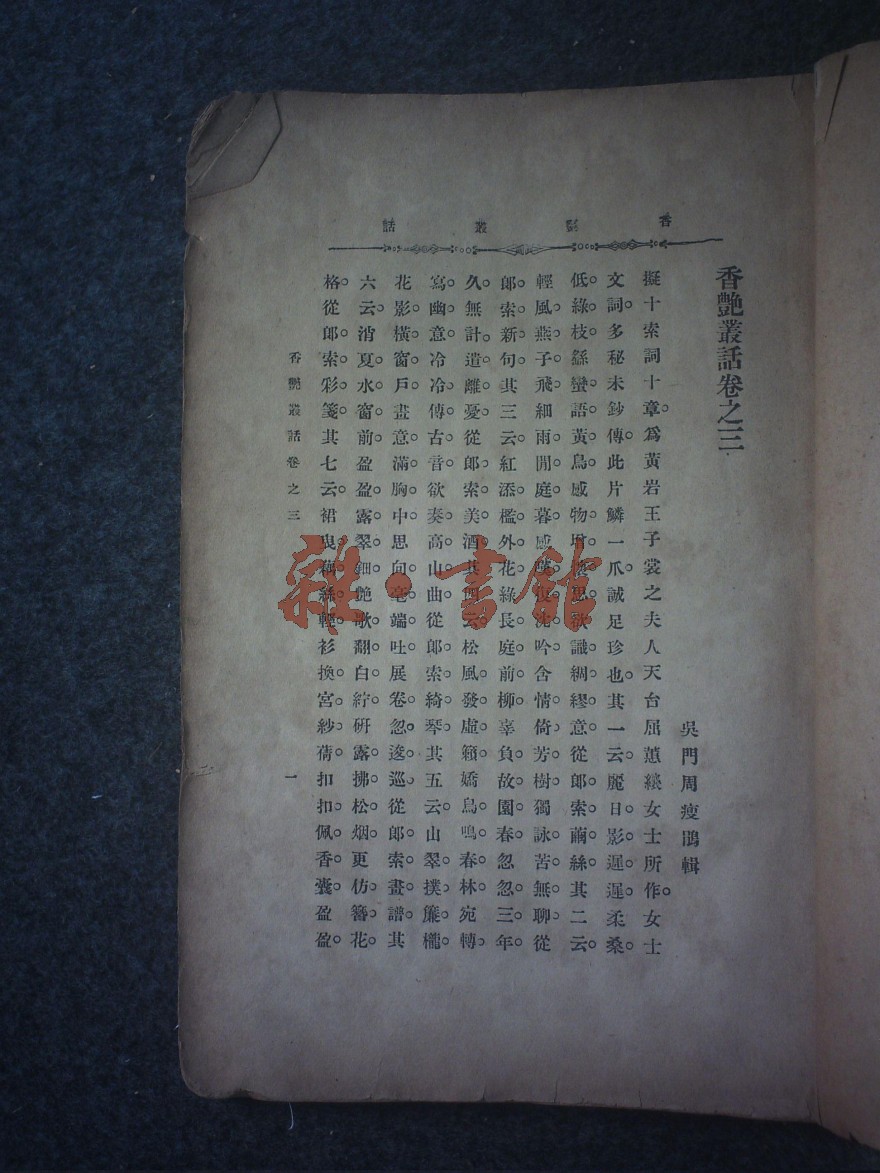 香艷叢話
香艷叢話卷之三
吳門周瘦鵑輯
擬十索詞十章。爲黃岩王子裳之夫人天台屈蕙纕女士所作。女士
文詞。多秘未鈔傳。此片鱗一爪。誠足珍也。其一云。麗日。影遲遲。柔桑。
低。綠枝。緜蠻語。黃鳥。感物。增懷思。欲識綢繆。意。從郎索繭絲。其二云。
輕。風。燕子。飛。細雨。閒庭。暮。感復沈吟。含情。倚。芳樹。獨詠苦。無聊。從
郎。索新。句。其三云。紅添。檻外花。綠長。庭前柳。辜負故。園春。忽忽三年。
久。無計。遣離憂。從郎。索美。酒。其四云。松風。發虛。籟。嬌鳥。鳴。春。林。宛轉。
寫。幽意。冷冷。傳古音。欲奏。高山。曲。從郎索。綺。琴。其五云。山翠。撲。簾櫳。
花影。橫窗。戶。畫意。滿胸。中。思向。毫端。吐。展卷。忽。逡巡。從郎。索畫。譜。其
六云。消夏水。窗前。盈盈。露翠鈿。艷歌翻。白紵。研露。拂松。烟。更仿。簪。花。
格。從郎。索。彩。箋。其七云。裙曳藕絲輕。衫換。宮紗。蒨扣扣。佩香。囊。盈盈。
香艷叢話卷之三
一
雜·書館